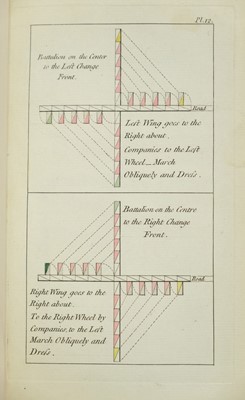 Pl. 12.
Battalion on the Center
to the Left Change
Front.
Road
Left Wing goes to the
Right about.
Companies to the Left
Wheel _ March
Obliquely and Dress.
Battalion on the Centre
to the Right Change
Front.
Road
Right Wing goes to the
Right about.
To the Right Wheel by
Companies, to the Left
March Obliquely and
Dress.